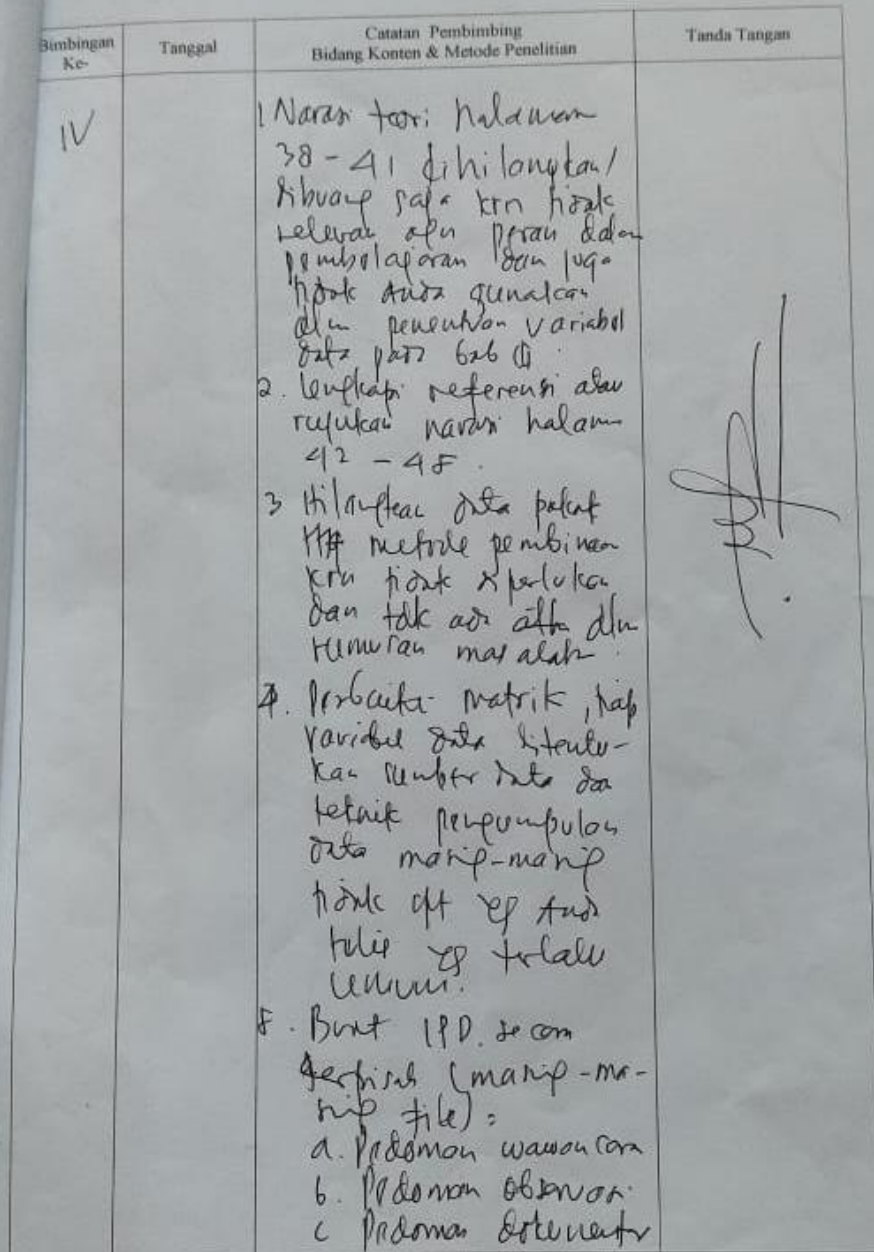 Bimbingan Ke-
Tanggal
Catatan Pembimbing
Bidang Konten & Metode Penelitian
Tanda Tangan
IV
1 Narasi teori halaman
38 - 41 dihilangkan/
dibuang saja krn tidak
relevan dgn peran dalam
pembelajaran dan juga
tidak Anda gunakan
dlm penentuan variabel
data pada bab
2. lengkapi referensi atau
rujukan narasi halaman
42 - 48.
3 Hilangkan data
metode pembinaan
krn tidak diperlukan
dan tdk ada dlm
rumusan masalah.
4. Perbaiki matrik, tiap
variabel data ditentu-
kan sumber data dan
teknik pengumpulan
data masing-masing
tidak spt yg Anda
tulis yg terlalu
umum.
5. Buat IPD. secara
terpisah (masing-ma-
sing file):
a. Pedoman wawancara
b. Pedoman observasi
c Pedoman